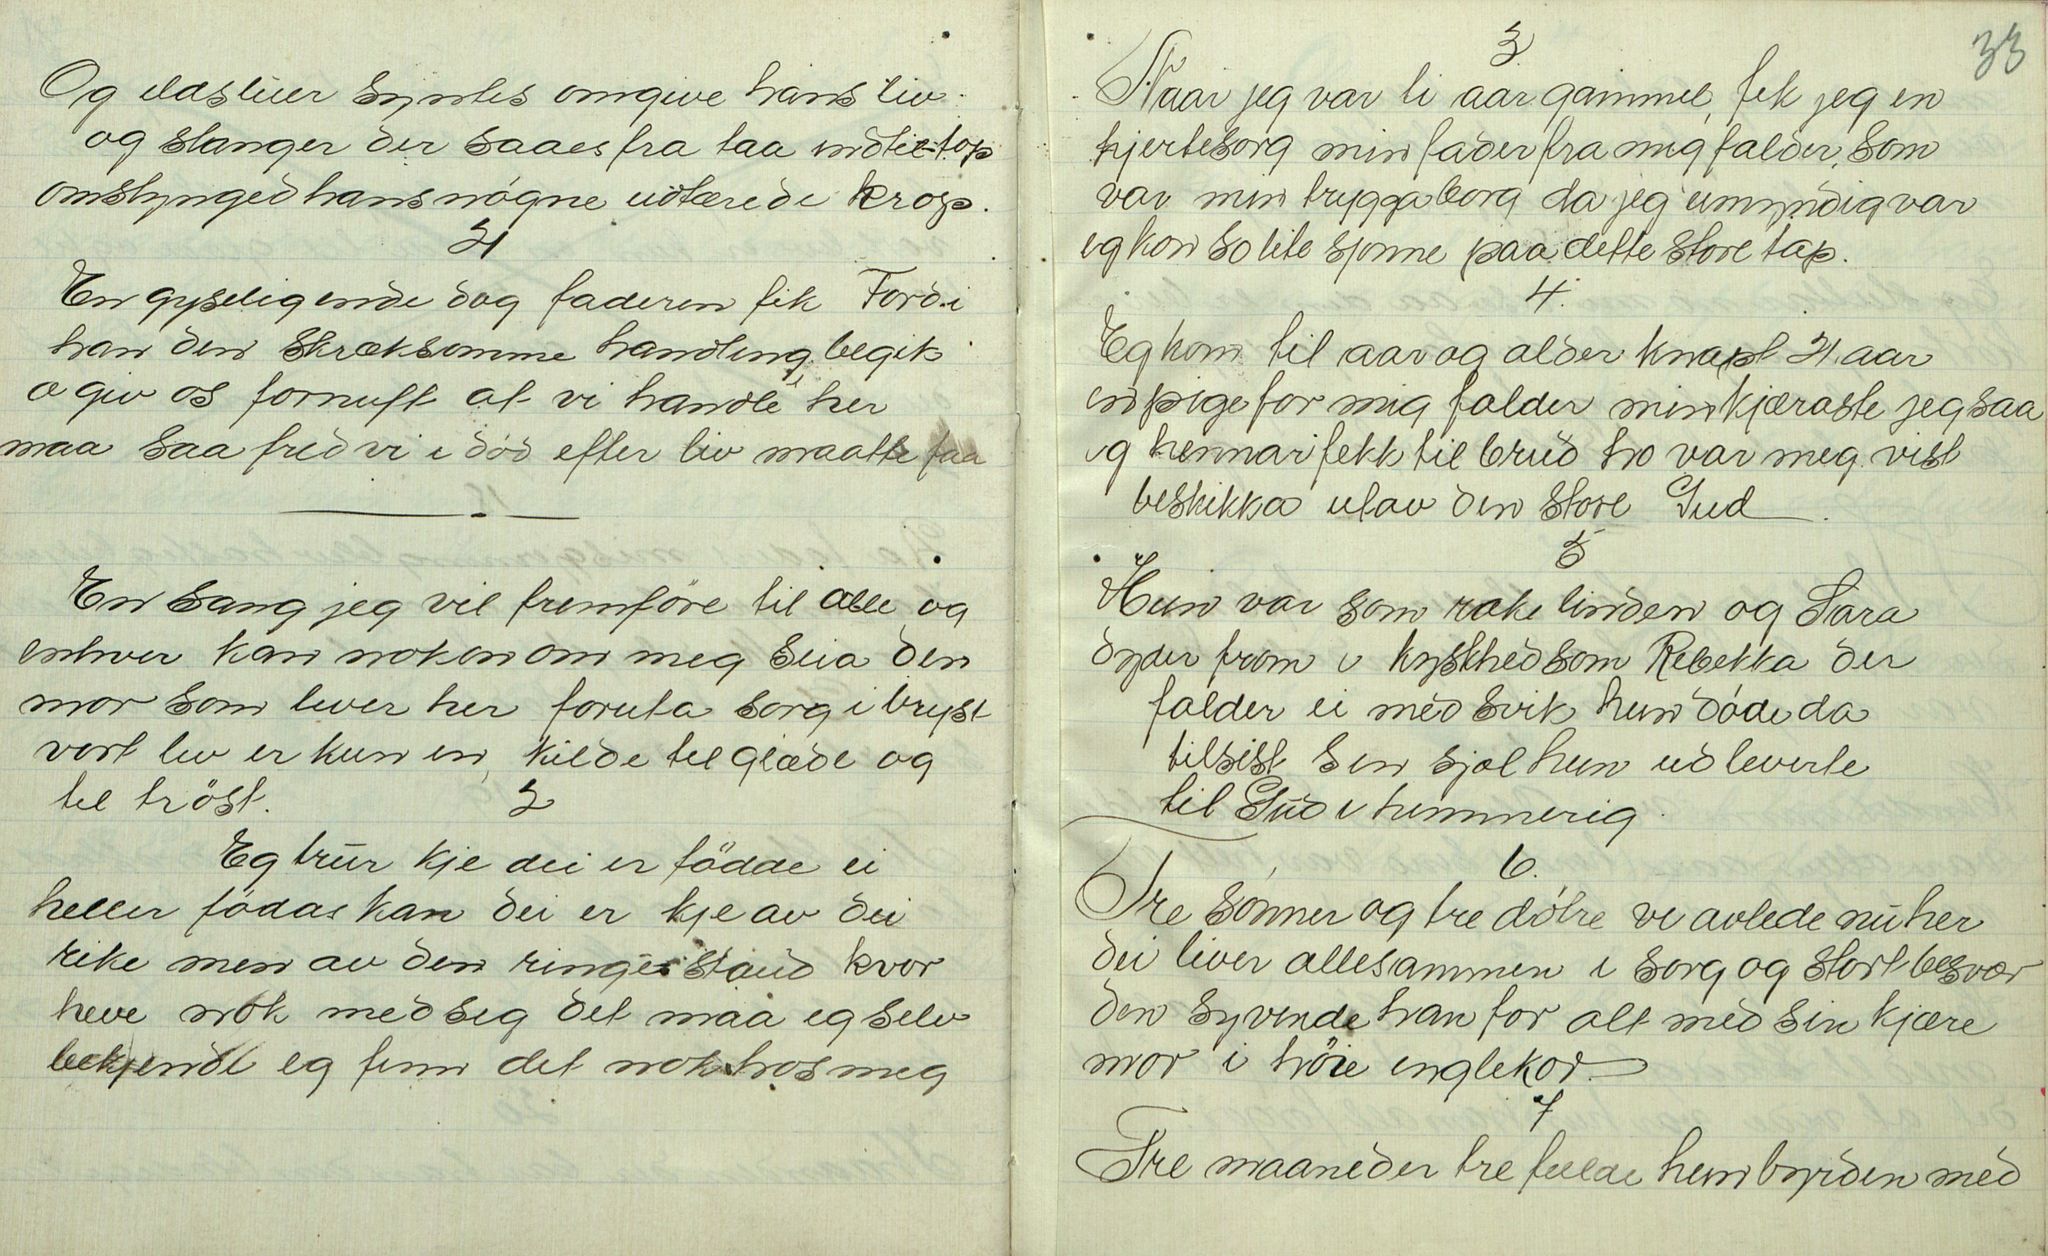 Og ildsluer syntes omgive hans liv
og slanger der saaes fra taa indtil top
omslynged hans nøgne udtærede krop.
21
En gyselig ende dog faderen fik Fordi
han den skræksomme handling begik
o giv os fornuft at vi handle her
maa saa fred vi i død efter liv maatte faa
En sang jeg vil fremföre til alle og
enhver kan nokon om meg seia den
mor som lever her foruta sorg i bryst
vort liv er kun en kilde til glæde og
til tröst.
2
Eg trur kje dei er födde ei
heller födas kan dei er kje av dei
rike men av den ringe stand kvor
heve nok med seg det maa eg selv
bekjende eg finn det nok hos meg
33
3
Naar jeg var ti aar gammel, fek jeg en
hjertesorg min fader fra mig falder, som
var min trygga borg da jeg umyndig var
og kon so lite sjonne paa dette store tap.
4.
Eg kom til aar og alder knapt 21 aar
en pige for mig falder min kjæraste jeg saa
og hennar fekk til brud ho var meg vist
beskikka utav den store Gud
5
Hun var som rake linden og Sara
dyder from i kyskhed som Rebekka der
falder ei med svik hun døde da
tilsist sin sjæl hun udleverte
til Gud i himmerig.
6.
Tre sønner og tre døtre vi avlede nu her
dei liver allesammen i sorg og stort besvær
den syvende han for alt med sin kjære
mor i høie englekor.
7
Tre maaneder tre fulde hun byrden med